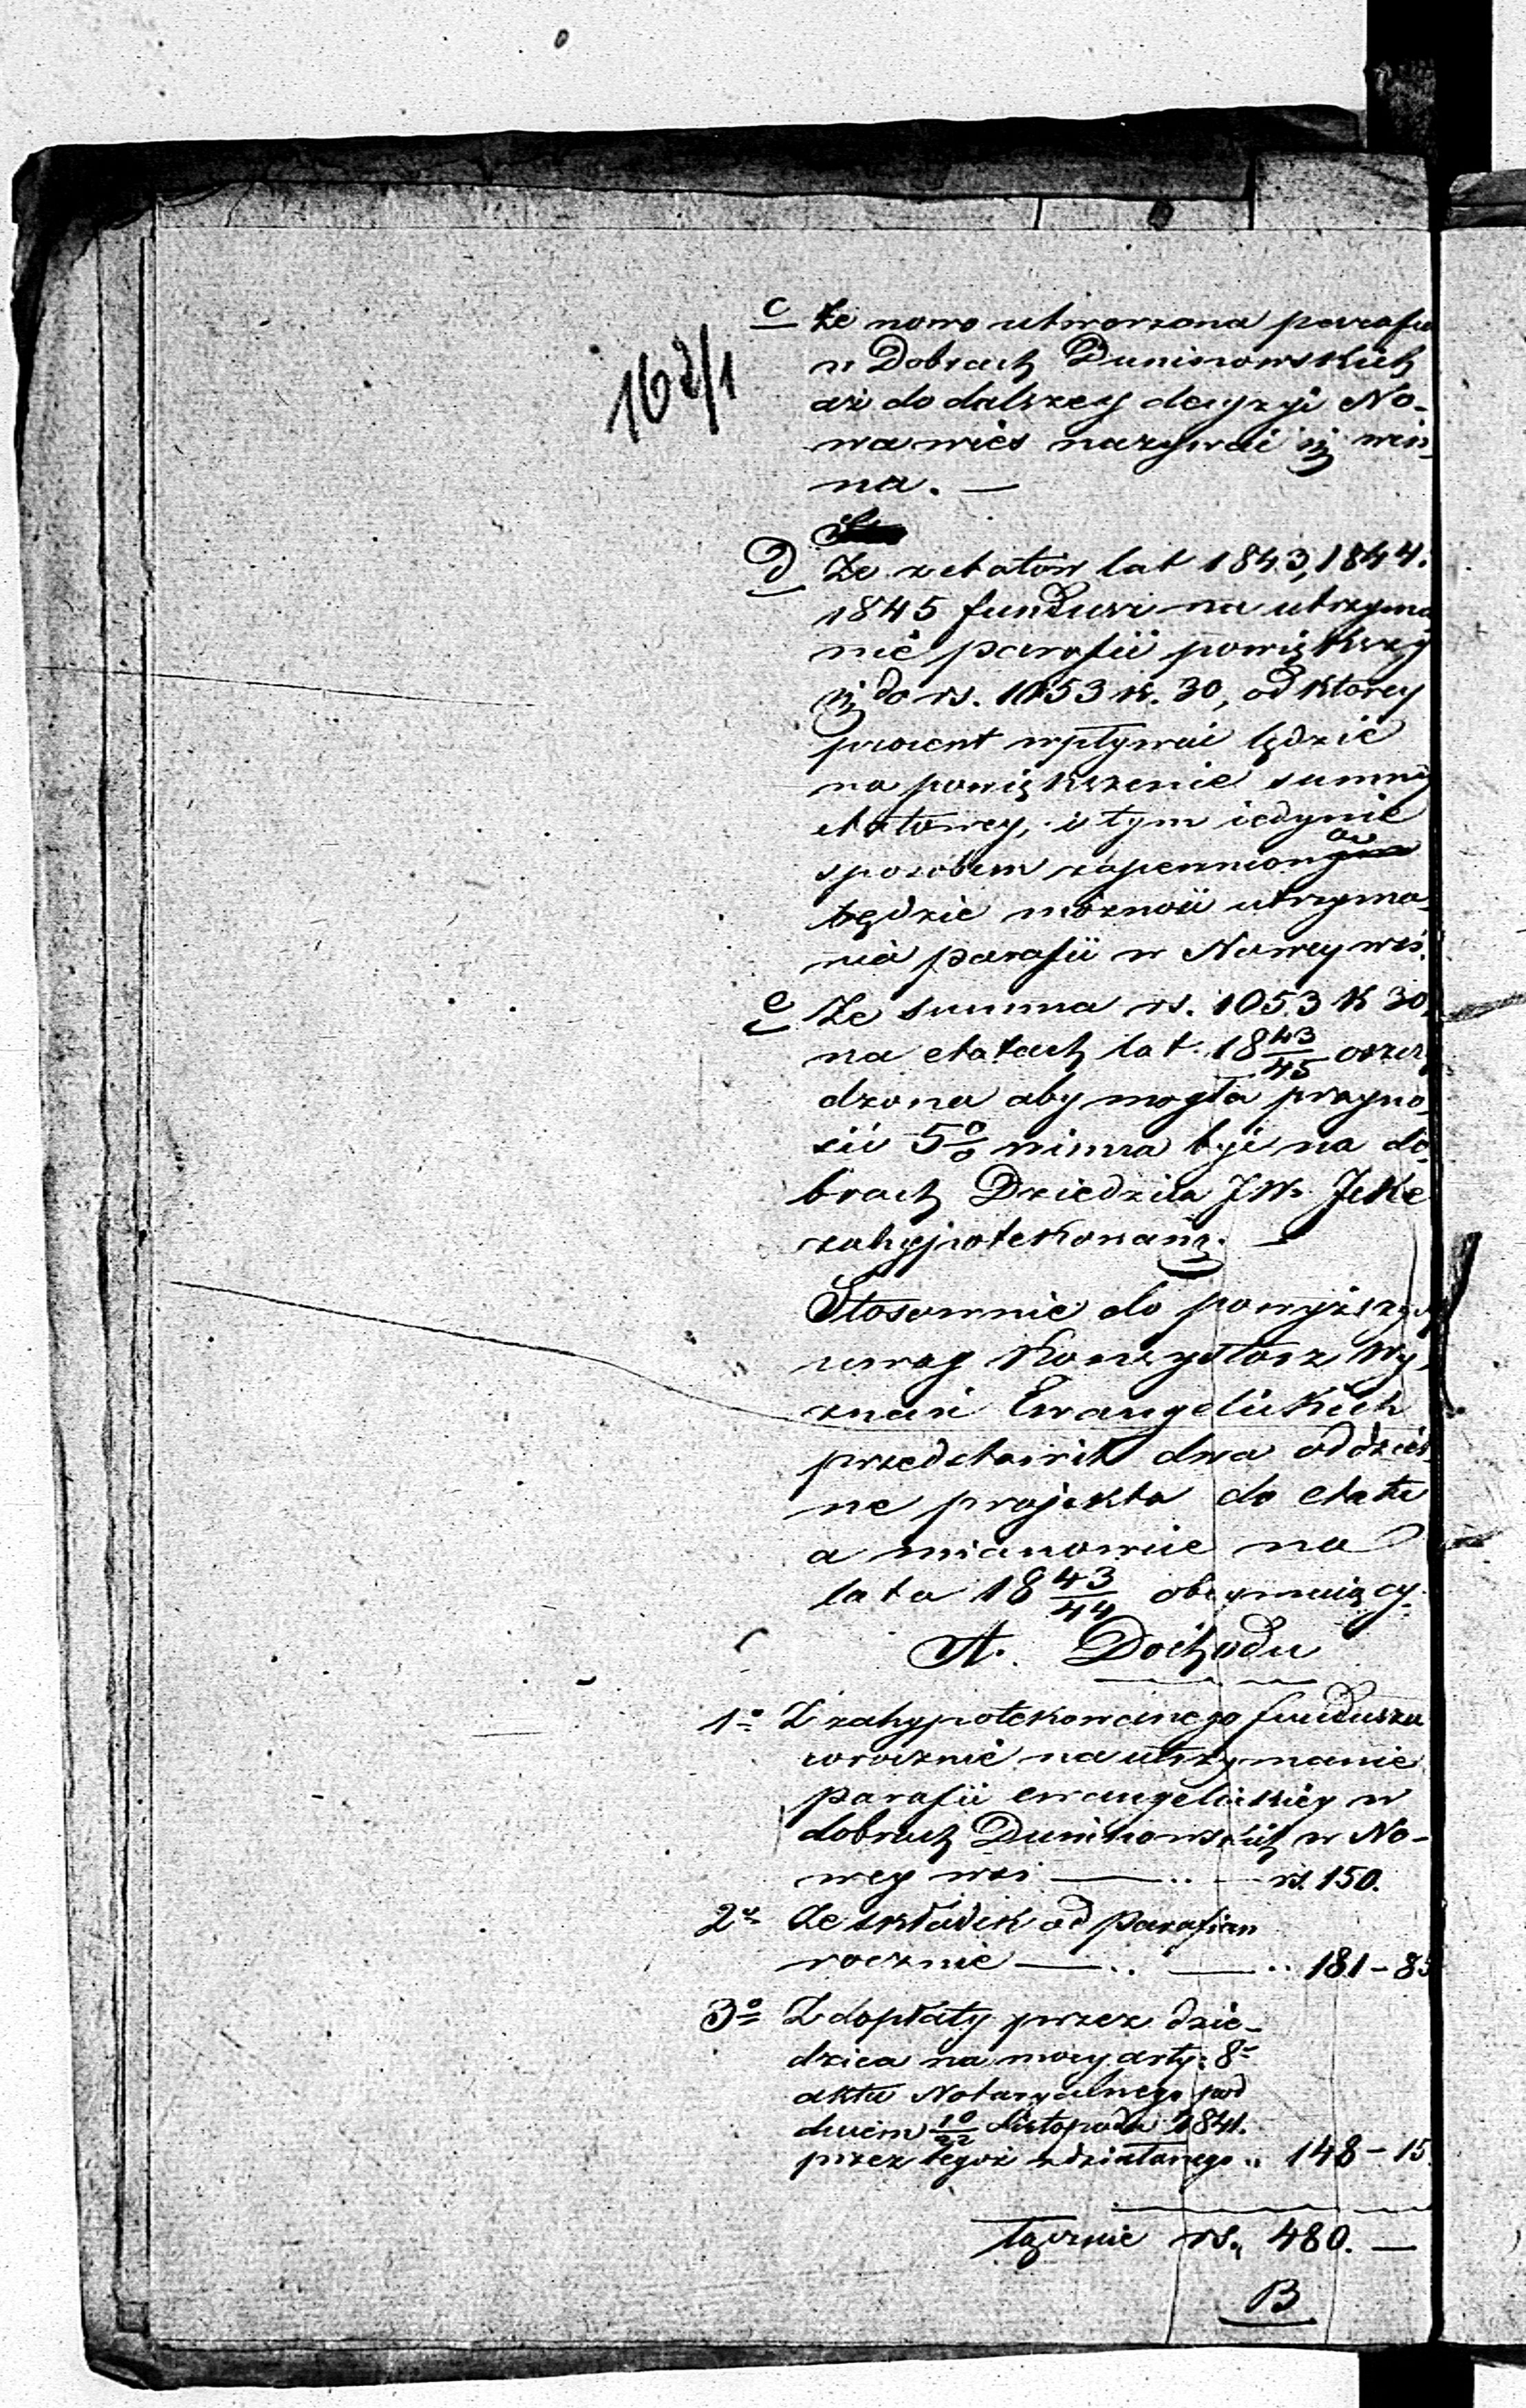 c Że nowo utworzona parafia
w Dobrach Duninowskich
aż do dalszey decyzyi No-
wa wieś nazywać się win-
na. —
d Że z etatów lat 1843, 1844.
1845 fundusz na utrzyma
nie parafii powiększy
się do rs. 1053 k. 30, od ktorey
procent wpływać będzie
na powiększenie summy
etatowey, i tym iedynie
sposobem zapewnioną
będzie możność utrzyma-
nia parafii w Nowey wsi.
e Że summa rs. 1053 k 30
na etatach lat 18 43/45 oszczę
dzona aby mogła przyno-
sić 5 % winna być na do-
brach Dziedzica JW. Jeke
zahypotekowaną. —
Stosownie do powyższych
uwag Konsystorz Wy-
znań Ewangelickich
przedstawił dwa oddziel-
ne projekta do etatu
a mianowicie na
lata 18 43/44 obeymuiący.
A. Dochodu
1o Z zahypotekowanego funduszu
corocznie na utrzymanie
parafii ewangelickiey w
dobrach Duninowskich w No-
wey wsi —— .. — rs. 150.
2o Ze składek od Parafian
rocznie —— .. —— .. 181 - 85
3o Z dopłaty przez dzie-
dzica na mocy arty: 8o
aktu Notaryalnego pod
dniem 10/22 Listopada 1841.
przez tegoż zdziałanego .. 148 - 15.
Łącznie rs. 480. —
B